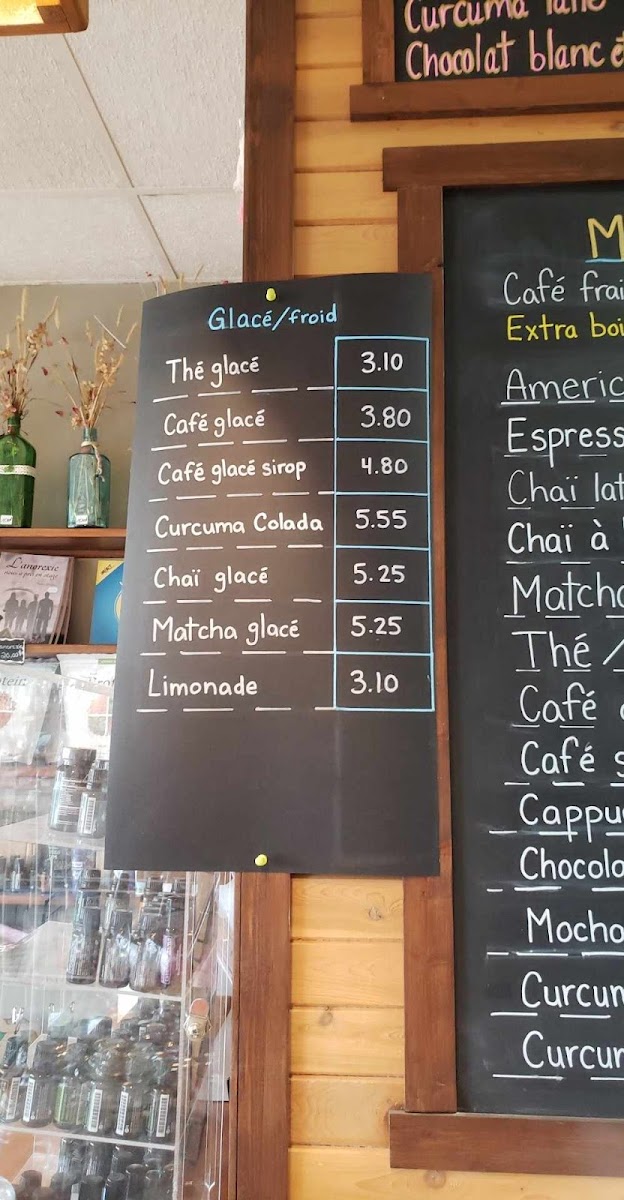 Curcuma latte
Chocolat blanc
Glacé/froid
Thé glacé 3.10
Café glacé 3.80
Café glacé sirop 4.80
Curcuma Colada 5.55
Chaï glacé 5.25
Matcha glacé 5.25
Limonade 3.10
M
Café frai
Extra boi
Americ
Espress
Chaï lat
Chaï à
Matcha
Thé /
Café
Café s
Cappu
Chocola
Mocha
Curcum
Curcum
L'angrexie